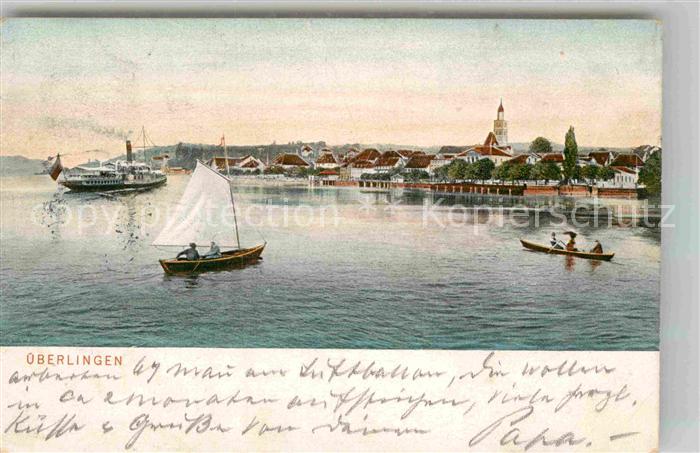 copyright protection
Kopierschutz
ÜBERLINGEN
arbeiten 67 Mann am Luftballon, die wollen
in ca 2 Monaten aufsteigen, Viele herzl.
Küsse & Grüße von deinem Papa. –